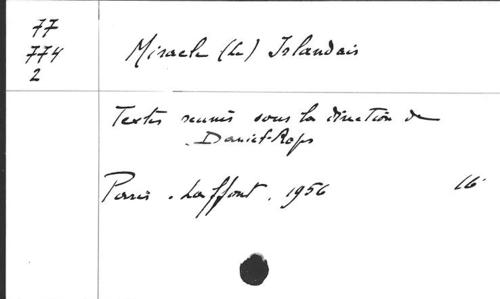 77
774
2
Miracle (Le) Irlandais
Textes réunis sous la direction de
Daniel-Rops
Paris. Laffont. 1956 16°